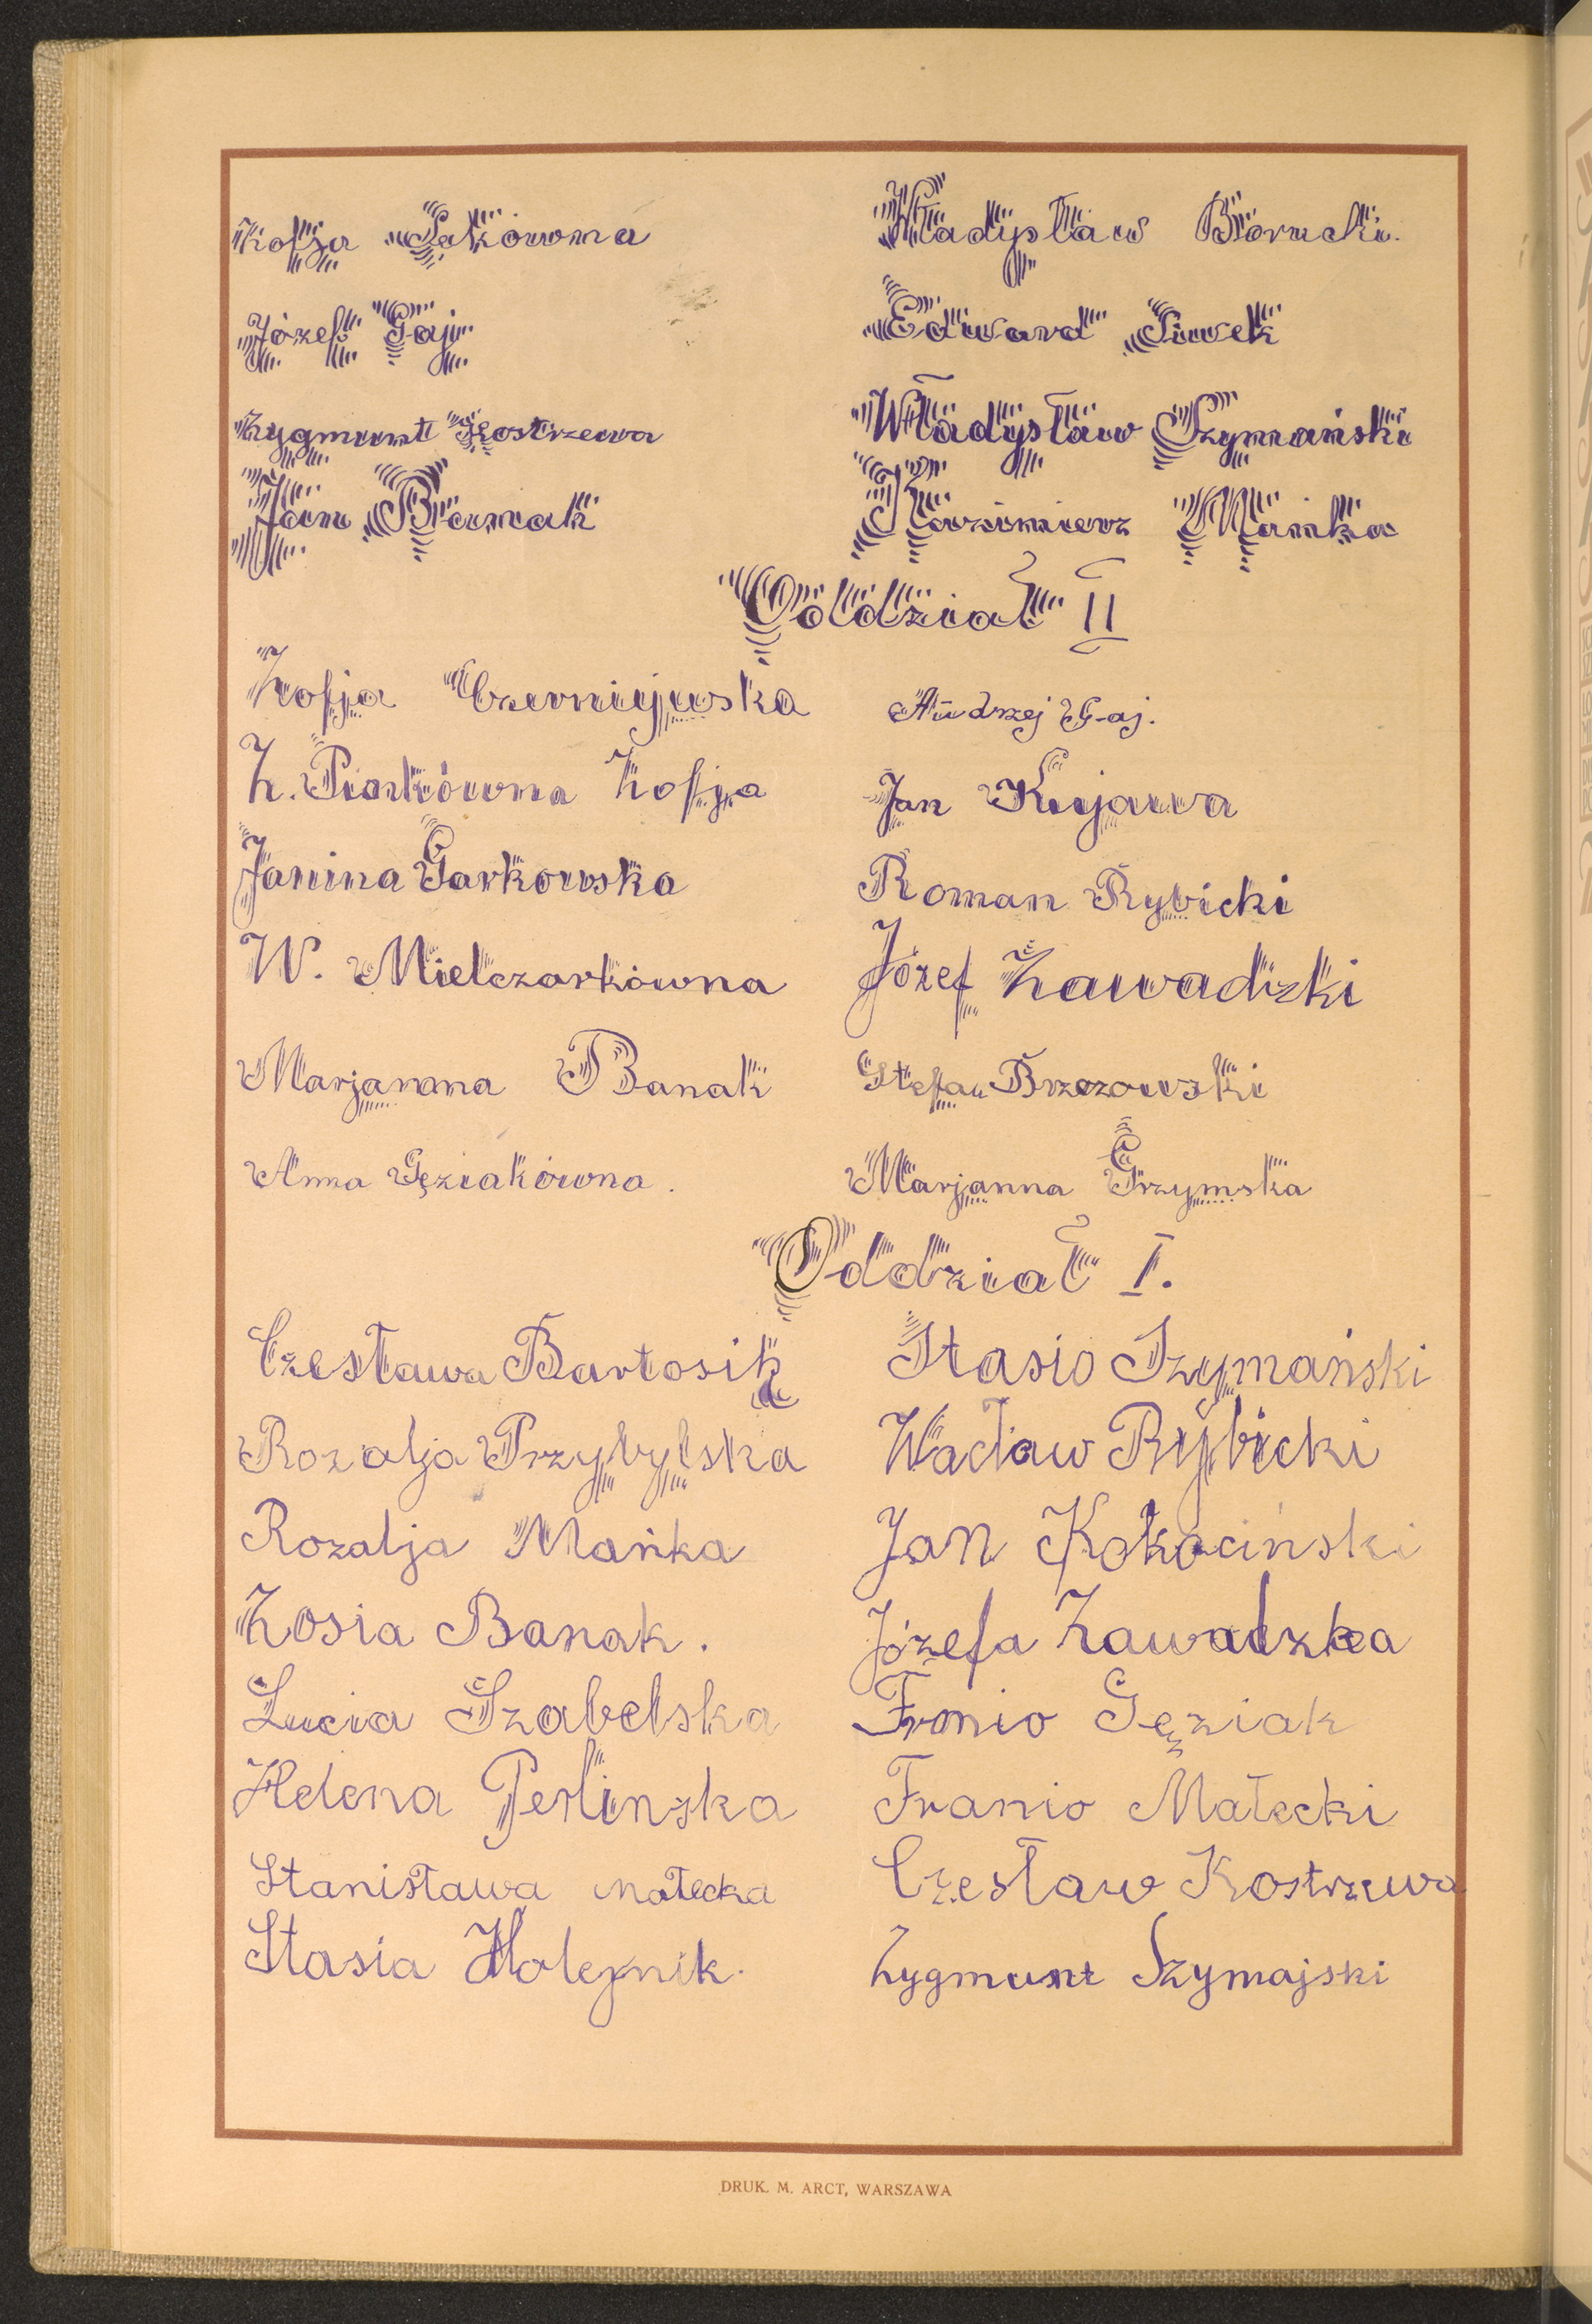 Zofja Sakówna
Władysław Borucki.
Józef Gaj
Edward Siwek
Zygmunt Kostrzewa
Władysław Szymański
Jan Banak
Kazimierz Mańka
Oddział II
Zofja Czerniejewska
Andrzej Gaj.
Z. Piankówna Zofja
Jan Kujawa
Janina Garkowska
Roman Rybicki
W. Mielczarkówna
Józef Zawadzki
Marjanna Banak
Stefan Brzezowski
Anna Gęziakówna.
Marjanna Grzymska
Oddział I.
Czesława Bartosik
Stasio Szymański
Rozalja Przybylska
Wacław Rybicki
Rozalja Mańka
Jan Kokociński
Zosia Banak.
Józefa Zawadzka
Lucia Szabelska
Franio Gęziak
Helena Perlinska
Franio Małecki
Stanisława Małecka
Czesław Kostrzewa
Stasia Holejnik.
Zygmunt Szymajski
DRUK. M. ARCT, WARSZAWA